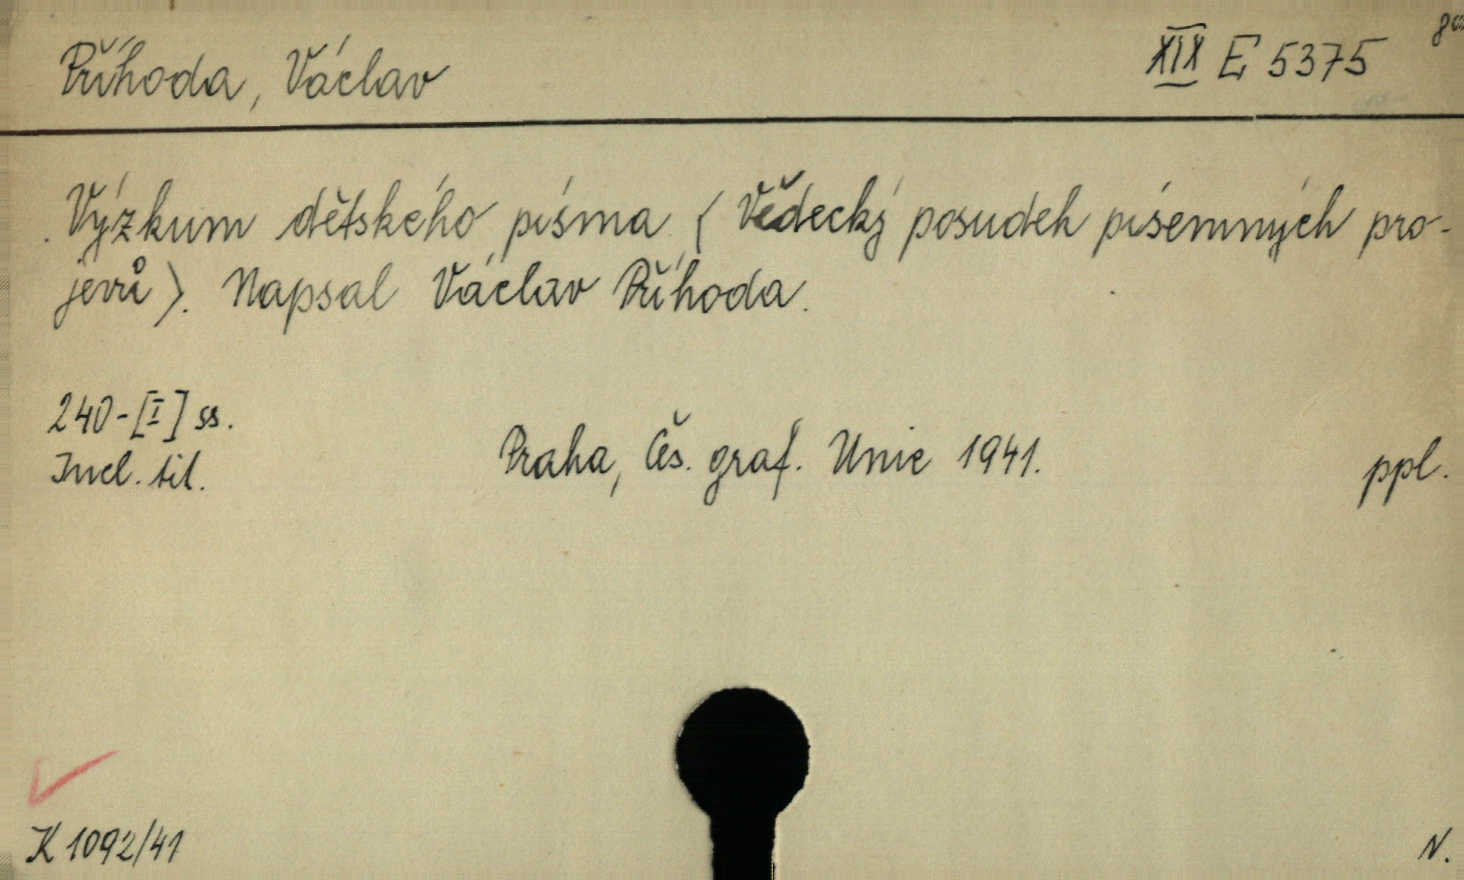 Příhoda, Václav
XIX E 5375
Výzkum dětského písma (Vědecký posudek písemných pro-
jevů). Napsal Václav Příhoda.
240-[I] ss.
Incl. tit.
Praha, Čes. graf. Unie 1941.
ppl.
K 1092/41
N.